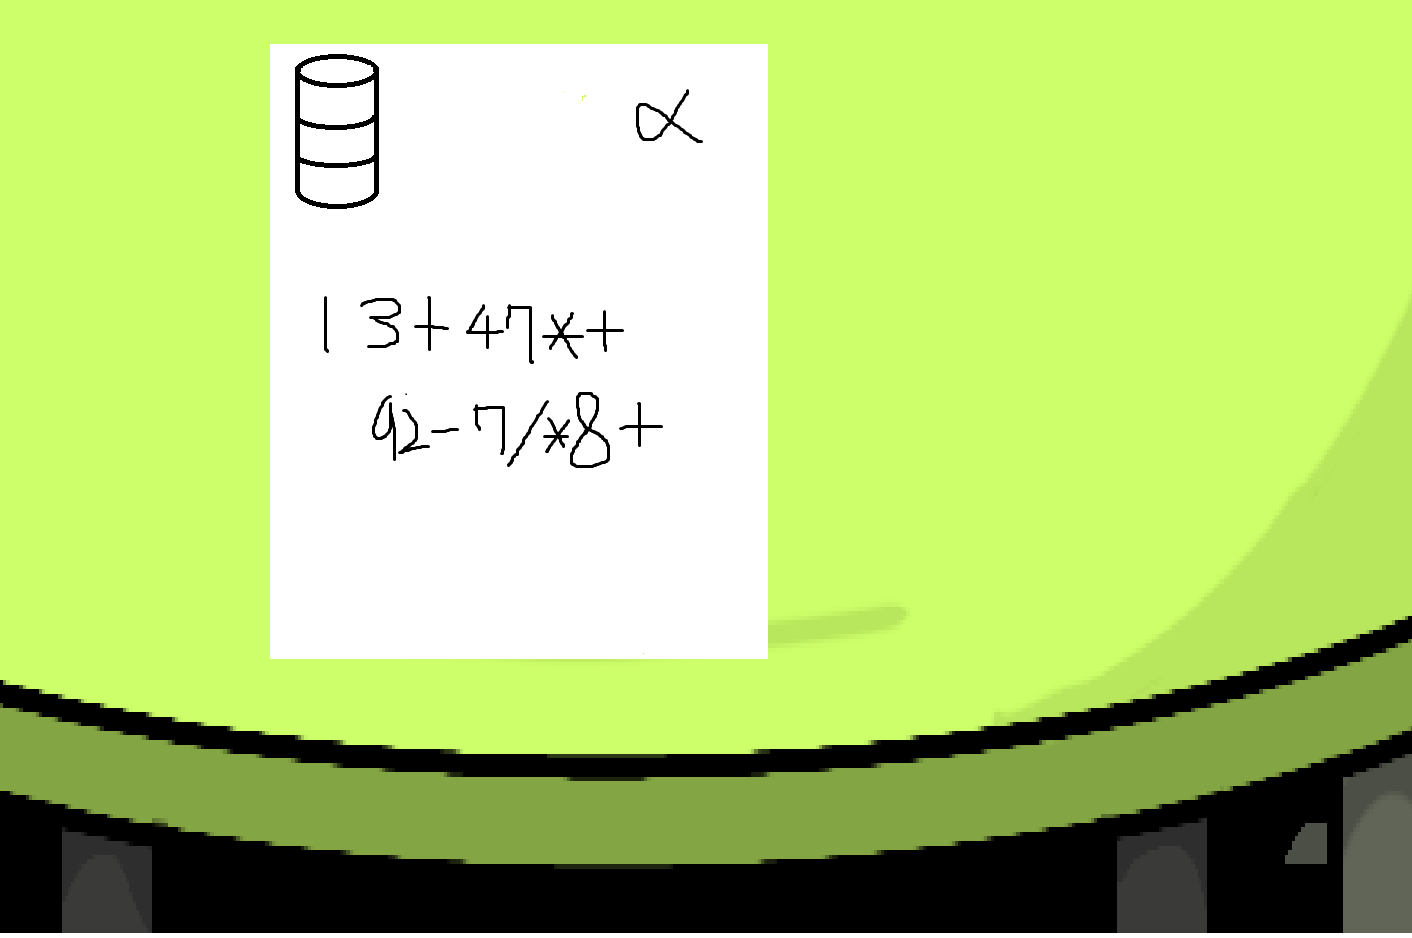 α
13+47*+
92-7/*8+